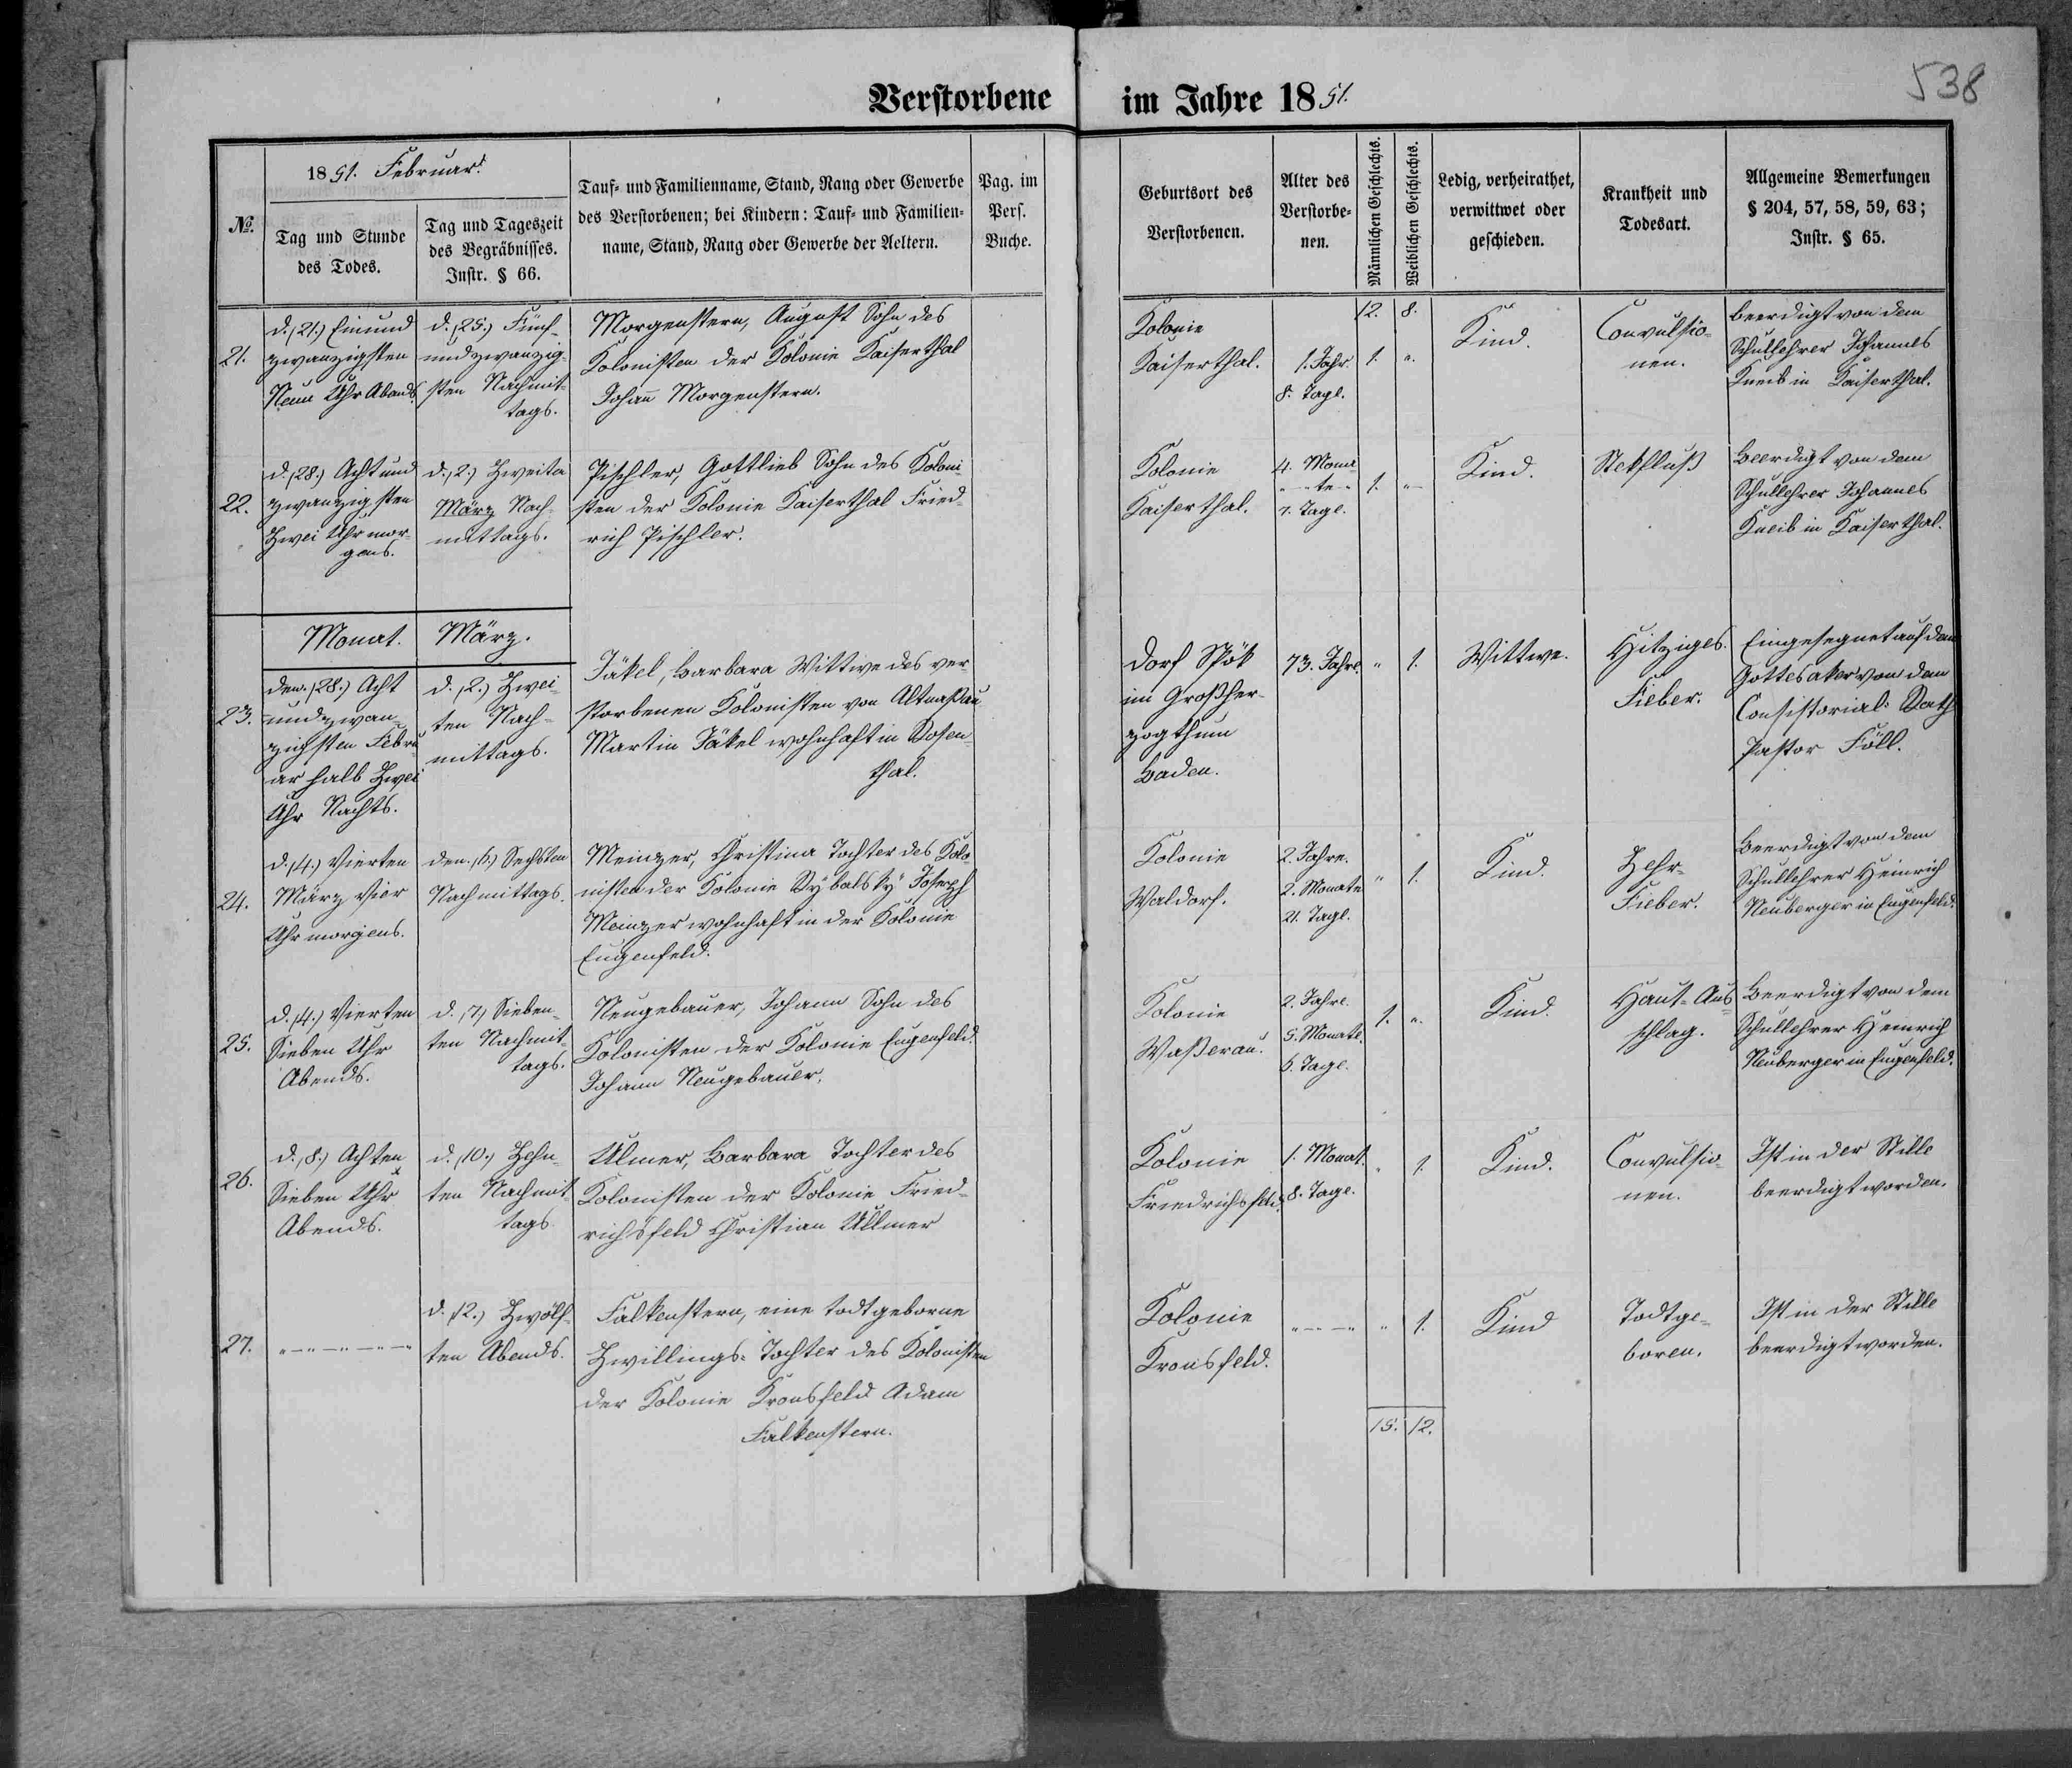 538
Verstorbene im Jahre 1851.
№.
1851. Februar.
Tag und Stunde
des Todes.
Tag und Tageszeit
des Begräbnisses.
Instr. § 66.
Tauf- und Familienname, Stand, Rang oder Gewerbe
des Verstorbenen; bei Kindern: Tauf- und Familien-
name, Stand, Rang oder Gewerbe der Aeltern.
Pag. im
Pers.
Buche.
Geburtsort des
Verstorbenen.
Alter des
Verstorbe-
nen.
Männlichen Geschlechts.
Weiblichen Geschlechts.
Ledig, verheirathet,
verwittwet oder
geschieden.
Krankheit und
Todesart.
Allgemeine Bemerkungen
§ 204, 57, 58, 59, 63;
Instr. § 65.
12. 8.
21.
d. (21.) Einund
zwanzigsten
Neun Uhr Abends.
d. (25.) Fünf-
undzwanzig-
sten Nachmit-
tags.
Morgenstern, August Sohn des
Kolonisten der Kolonie Kaiserthal
Johann Morgenstern.
Kolonie
Kaiserthal.
1. Jahr
8. Tage.
1. "
Kind.
Convulsio-
nen.
beerdigt von dem
Schullehrer Johannes
Kneib in Kaiserthal.
22.
d. (28.) Acht und
zwanzigsten
Zwei Uhr mor-
gens.
d. (2.) Zweiten
März Nach-
mittags.
Pischler, Gottlieb Sohn des Koloni
sten der Kolonie Kaiserthal Fried-
rich Pischler.
Kolonie
Kaiserthal.
4. Mona-
te
7. Tage.
1. "
Kind.
Stekfluß
Beerdigt von dem
Schullehrer Johannes
Kneib in Kaiserthal.
Monat. März.
23.
den. (28.) Acht
undzwan-
zichsten Febru
ar halb Zwei
Uhr Nachts.
d. (2.) Zwei-
ten Nach-
mittags.
Jäkel, Barbara Wittwe des ver
storbenen Kolonisten von Altnaßau
Martin Jäkel wohnhaft in Rosen-
thal.
Dorf Spök
im Großher-
zogthum
Baden.
73. Jahre.
" 1.
Wittwe.
Hitziges.
Fieber.
Eingesegnet auf dem
Gottesaker von dem
Consistorial: Rath
Pastor Föll.
24.
d. (4.) Vierten
März Vier
Uhr morgens.
den. (6.) Sechsten
Nachmittags.
Meinzer, Christina Tochter des Kolo
nisten der Kolonie Rÿbalskÿ Joseph
Meinzer wohnhaft in der Kolonie
Eugenfeld.
Kolonie
Waldorf.
2. Jahre.
2. Monate
21. Tage.
" 1.
Kind.
Zehr-
Fieber.
Beerdigt von dem
Schullehrer Heinrich
Neuberger in Eugenfeld.
25.
d. (4.) Vierten
Sieben Uhr
Abends.
d. (7.) Sieben-
ten Nachmit-
tags.
Neugebauer, Johann Sohn des
Kolonisten der Kolonie Eugenfeld.
Johann Neugebauer.
Kolonie
Waßerau.
2. Jahre.
5. Monate.
6. Tage.
1. "
Kind.
Haut-Aus
schlag.
Beerdigt von dem
Schullehrer Heinrich
Neuberger in Eugenfeld.
26.
d. (8.) Achten
Sieben Uhr
Abends.
d. (10.) Zehn-
ten Nachmit-
tags
Ulmer, Barbara Tochter des
Kolonisten der Kolonie Fried-
richsfeld Christian Ullmer
Kolonie
Friedrichsfeld.
1. Monat.
8. Tage.
" 1.
Kind.
Convulsio-
nen.
Ist in der Stille
beerdigt worden.
27.
" — " — " — " — "
d. (12.) Zwölf-
ten Abends.
Falkenstern, eine todtgeborne
Zwillings-Tochter des Kolonisten
der Kolonie Kronsfeld Adam
Falkenstern.
Kolonie
Kronsfeld.
" — " — "
" 1.
Kind
Todtge-
boren.
Ist in der Stille
beerdigt worden.
15. 12.